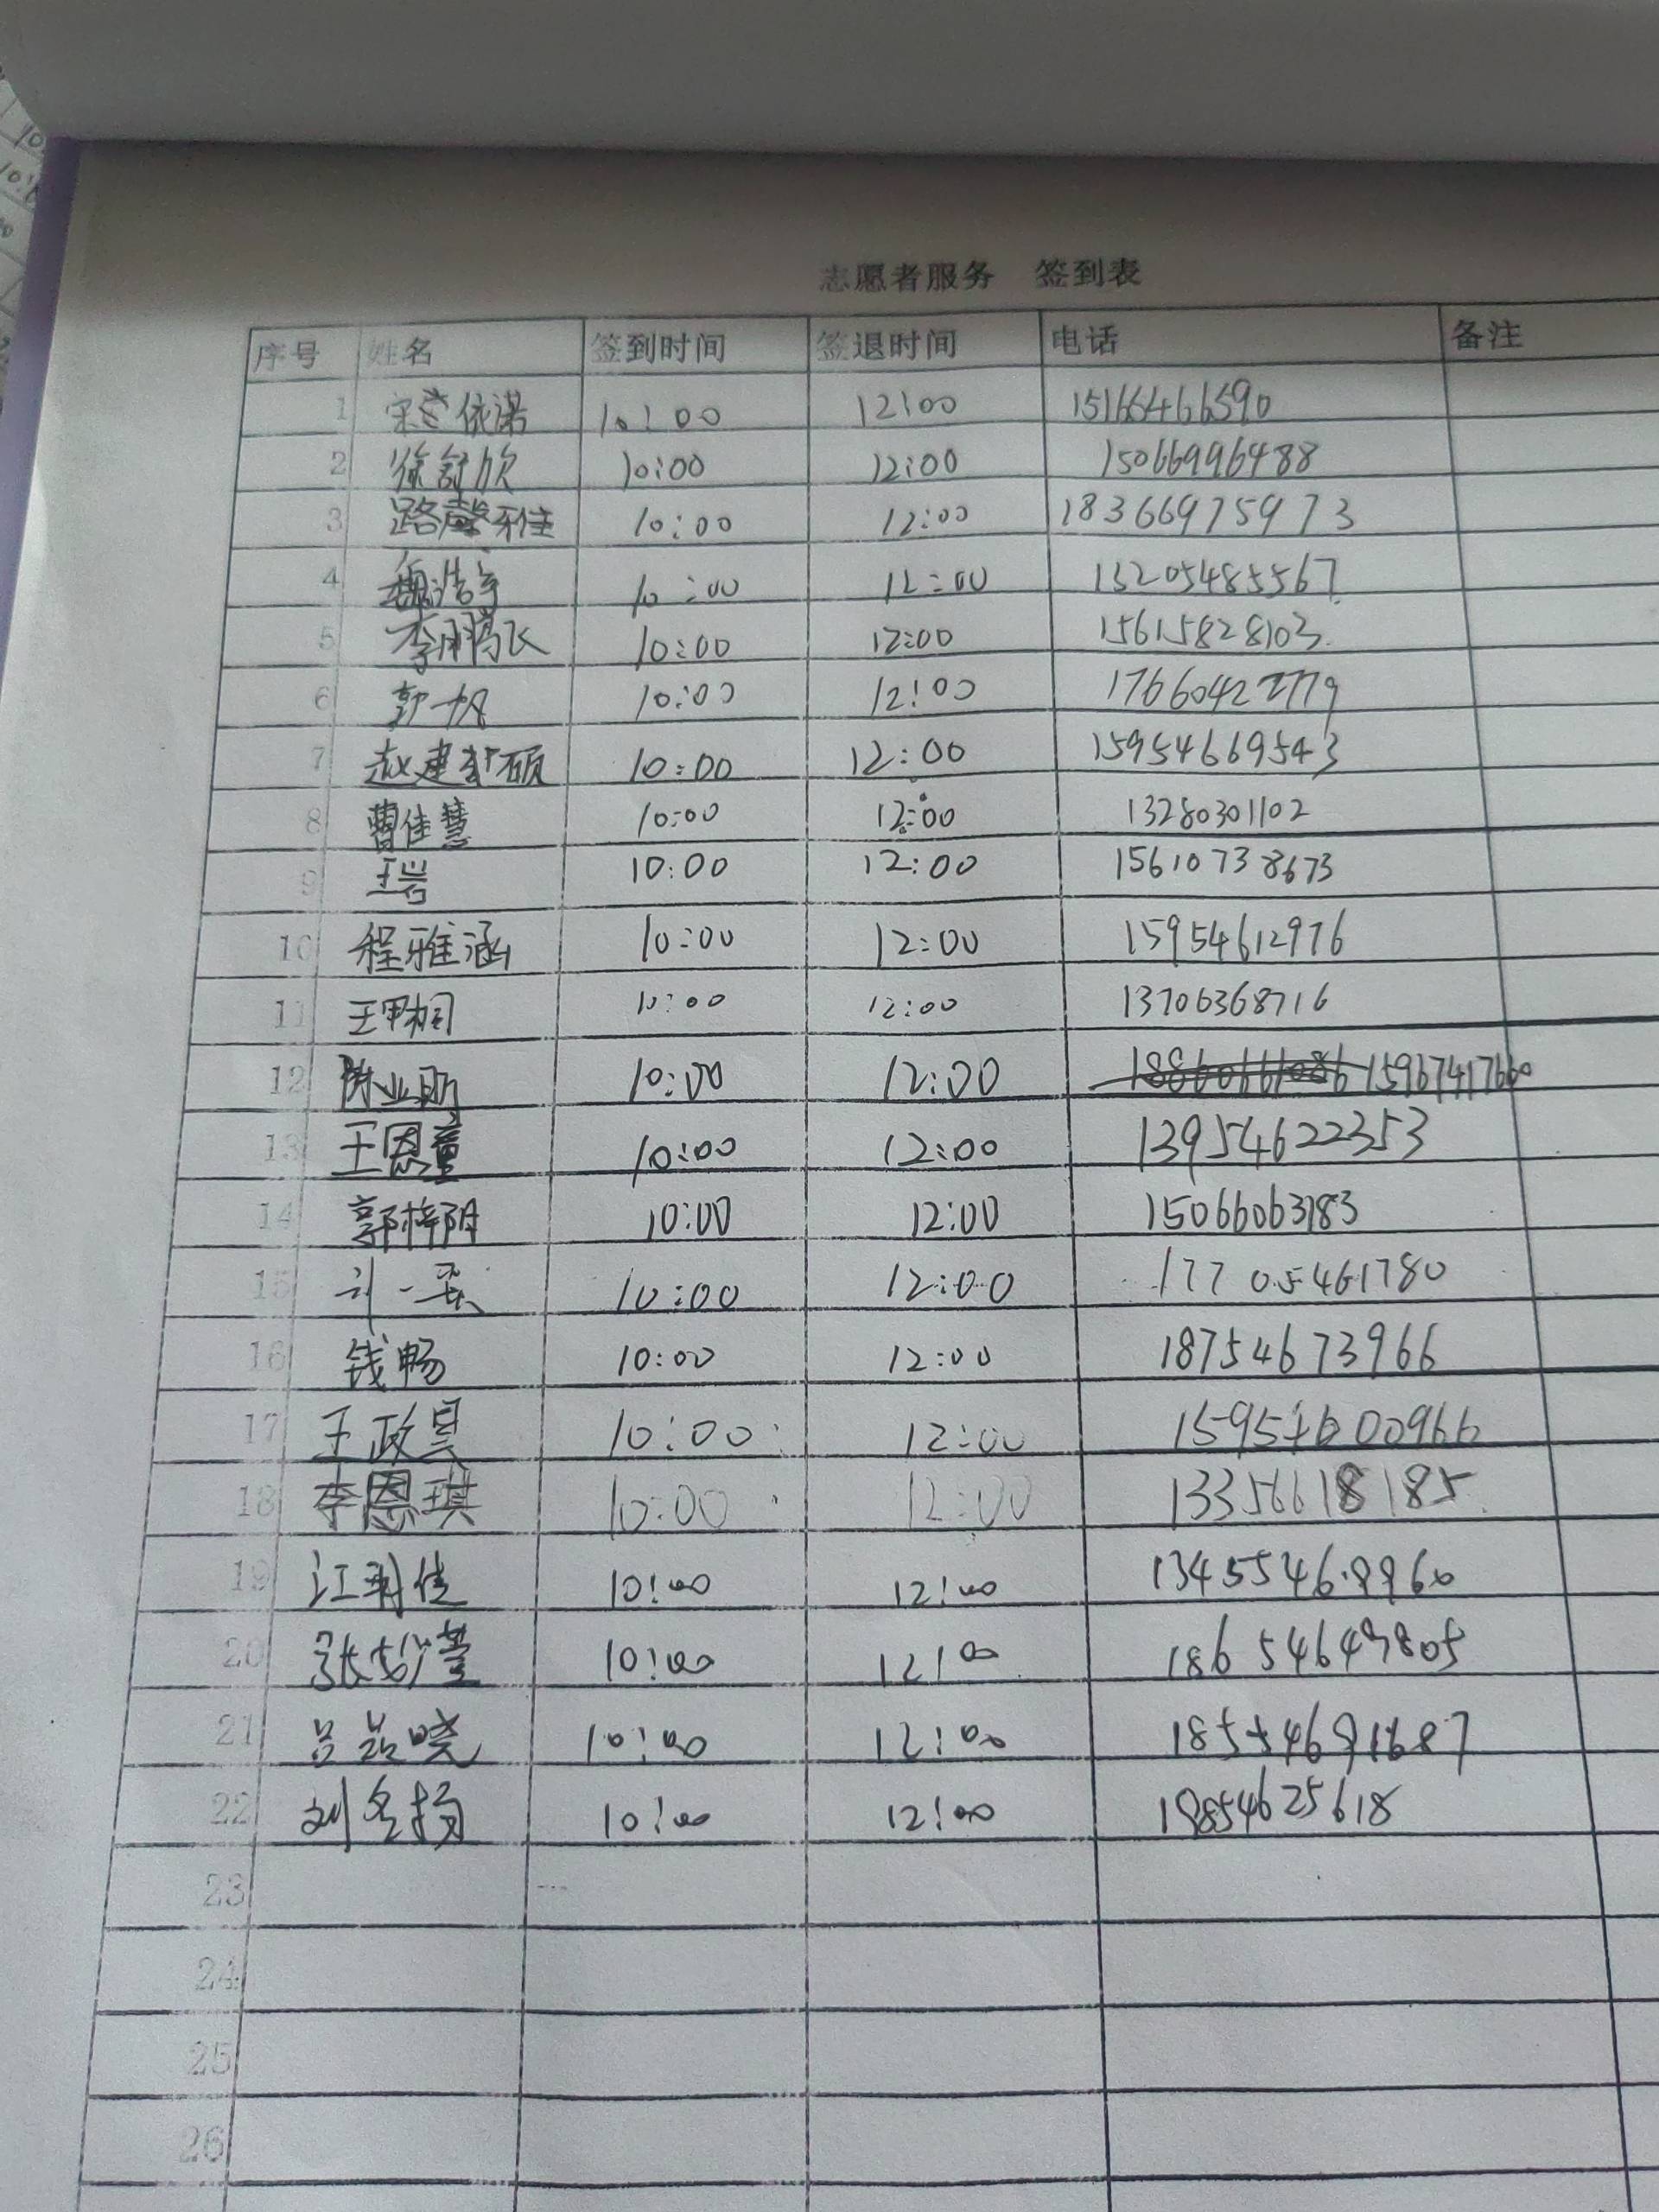 志愿者服务 签到表
序号 姓名 签到时间 签退时间 电话 备注
1 依诺 10:00 12:00 15166466590
2 徐舒欣 10:00 12:00 15066996488
3 路馨雅 10:00 12:00 18366975973
4 魏浩宇 10:00 12:00 13205485567
5 李鹏飞 10:00 12:00 15615828103
6 郭一凡 10:00 12:00
7 赵建硕 10:00 12:00 15954669543
8 曹佳慧 10:00 12:00 13280301102
9 王岩 10:00 12:00 15610738673
10 程雅涵 10:00 12:00 15954612976
11 王甲桐 10:00 12:00 13706368716
12 10:00 12:00 15967417660
13 王恩童 10:00 12:00 13954622353
14 郭梓阳 10:00 12:00 15066063183
15 10:00 12:00 17705461780
16 钱畅 10:00 12:00 18754673966
17 王政昊 10:00 12:00 15954600966
18 李恩琪 10:00 12:00 13356618185
19 江玥佳 10:00 12:00
20 张梦萱 10:00 12:00
21 吕 晓 10:00 12:00
22 刘名扬 10:00 12:00
23
24
25
26